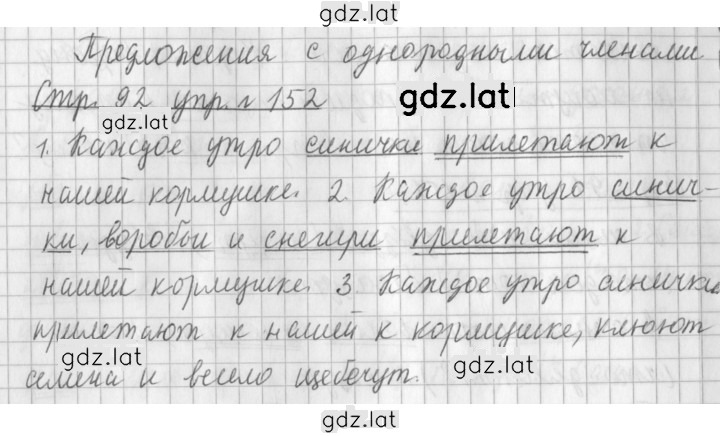 gdz.lat
Предложения с однородными членами
Стр. 92 упр. г 152
gdz.lat
gdz.lat
1. Каждое утро синички прилетают к
нашей кормушке. 2. Каждое утро синич-
ки, воробьи и снегири прилетают к
нашей кормушке. 3. Каждое утро синички
прилетают к нашей к кормушке, клюют
gdz.lat
gdz.lat
семена и весело щебечут.
gdz.lat